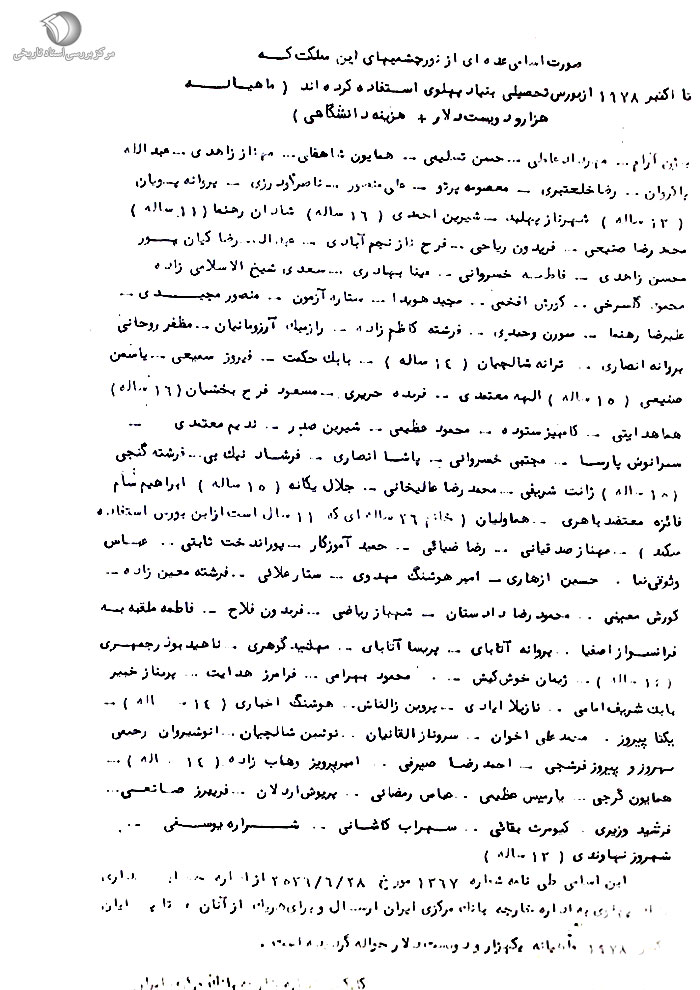 مرکز بررسی اسناد تاریخی
صورت اسامی عده ای از نورچشمیهای این مملکت که
تا اکتبر ۱۹۷۸ از بورس تحصیلی بنیاد پهلوی استفاده کرده اند ( ماهیانه
هزار و دویست دلار + هزینه دانشگاهی )
آرام -- حسن تسلیمی -- همایون شاهقلی -- مهناز زاهدی -- عبدالله
رضا خلعتبری -- معصومه پرتو -- علی منصور -- ناصر گودرزی -- پروانه پویان
( ۱۳ ساله ) شهرناز پهلبد -- شیرین احمدی ( ۱۶ ساله ) شادان رهنما ( ۱۱ ساله )
محمد رضا صنیعی -- فریدون ریاحی -- فرح ناز نجم آبادی -- رضا کیان پور
محسن زاهدی -- فاطمه خسروانی -- مینا بهادری -- سعدی شیخ الاسلامی زاده
محمود گلسرخی -- کورش افخمی -- مجید هویدا -- ستاره آزمون -- منصور مجیدی --
علیرضا رهنما -- سورن وحیدی -- فرشته کاظم زاده -- رازمیک آرزومانیان -- مظفر روحانی
پروانه انصاری -- ترانه شالچیان ( ۱۴ ساله ) -- بابک حکمت -- فیروز سمیعی -- یاسمن
صنیعی ( ۱۵ ساله ) الهه معتمدی -- فریده حریری -- مسعود فرح بخشیان ( ۱۶ ساله )
هما هدایتی -- کامبیز ستوده -- محمود عظیمی -- شیرین صدر -- ندیم معتمدی --
پارسا -- مجتبی خسروانی -- پاشا انصاری -- فرشاد نیک پی -- فرشته گنجی
( ۱۸ ساله ) ژانت شریفی -- محمد رضا عالیخانی -- جلال یگانه ( ۱۵ ساله ) ابراهیم شام
فائزه معتضد باهری -- هما ولیان ( خانم ۲۶ ساله ای که ۱۱ سال است از این بورس استفاده
میکند ) -- مهناز صدقیانی -- رضا ضیائی -- حمید آموزگار -- پوراندخت ثابتی -- عباس
وثوقی نیا . حسین ازهاری -- امیر هوشنگ مهدوی -- ستار علائی -- فرشته معین زاده --
کورش معینی . محمود رضا دادستان -- شهباز ریاضی -- فریدون فلاح -- فاطمه ملقبه به
فرانسواز اصفیا . پروانه آتابای -- پریسا آتابای -- مهشید گوهری . ناهید بوذرجمهری
( ساله ) -- خوش کیش -- محمود بهرامی -- فرامرز هدایت -- پریناز خبیر
بابک شریف امامی . نازیلا ایرادی -- پروین زالتاش -- هوشنگ اخباری ( ۱۴ ساله ) --
یکتا پیروز . محمد علی اخوان -- سروناز القانیان -- نوشین شالچیان -- انوشیروان رحیمی
بهروز و پیروز فرشچی -- احمد رضا صیرفی -- امیر پرویز وهاب زاده ( ۱۴ ساله ) --
همایون گرجی -- پارمیس عظیمی -- عباس رمضانی -- پریوش اردلان -- فریبرز صانعی --
فرشید وزیری . کیومرث بقائی -- سهراب کاشانی -- شراره یوسفی --
شهروز نهاوندی ( ۱۳ ساله )
این اسامی طی نامه شماره ۱۳۶۷ مورخ ۲۵۳۶/۶/۲۸ از اداره
به اداره خارجه بانک مرکزی ایران ارسال و برای هریک از آنان
۱۹۷۸ ماهیانه یکهزار و دویست دلار حواله گردیده است .